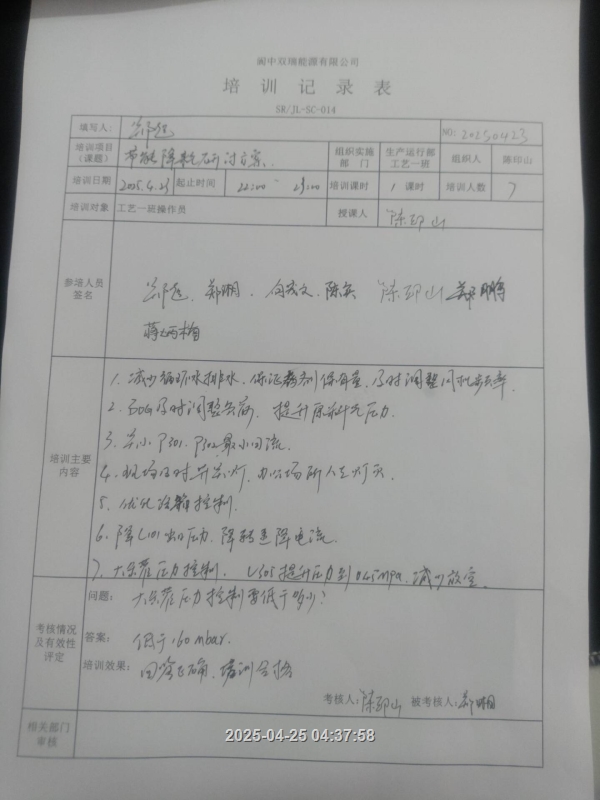 阆中双瑞能源有限公司
培训记录表
SR/JL-SC-014
填写人: NO: 20250423
培训项目(课题) 节能降耗研讨方案. 组织实施部门 生产运行部工艺一班 组织人 陈印山
培训日期 2025.4.23 起止时间 22:00 - 23:00 培训课时 1 课时 培训人数 7
培训对象 工艺一班操作员 授课人 陈印山
参培人员签名
陈印山 郑鹏
培训主要内容
1. 减少循环水排水, 保证药剂 及时调整
2. BOG及时调整负荷, 提升原料气压力.
3. 关小P301, P302最小回流.
4. 现场及时开关灯, 办公场所人走灯灭
5. 优化冷箱控制.
6. 降L101出口压力, 降转速降电流.
7. 大储罐压力控制. 提升压力到0.45mpa, 减少放空.
考核情况及有效性评定
问题: 大储罐压力控制要低于多少?
答案: 低于160mbar.
培训效果: 回答正确, 培训合格
考核人: 陈印山 被考核人:
相关部门审核
2025-04-25 04:37:58